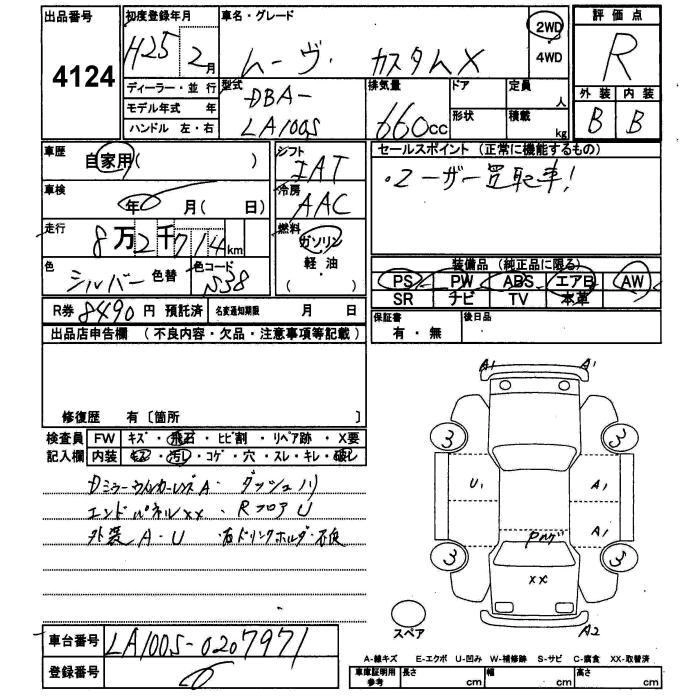 出品番号 4124
初度登録年月 H25 2月
車名・グレード ムーヴ カスタムX
2WD
4WD
評価点 R
外装 内装
B B
ディーラー・並行
モデル年式 年
ハンドル 左・右
型式 DBA-
LA100S
排気量 660cc
ドア
形状
定員 人
積載 kg
車歴 自家用( )
車検 年 月( 日)
走行 8万2千714km
色 シルバー 色替
色コード S38
シフト IAT
冷房 AAC
燃料 ガソリン
軽・油
( )
セールスポイント(正常に機能するもの)
・ユーザー買取車!
装備品(純正品に限る)
PS PW ABS エアB AW
SR ナビ TV 本革
保証書 有・無
後日品
R券 8490円 預託済
名変通知期限 月 日
出品店申告欄(不良内容・欠品・注意事項等記載)
修復歴 有〔箇所 〕
検査員 FW キズ・飛石・ヒビ割・リペア跡・X要
記入欄 内装 キズ・汚レ・コゲ・穴・スレ・キレ・破レ
DミラーウインカーレンズA・ダッシュノリ
エンドパネルXX・RフロアU
外装A・U ・右ドリンクホルダ不良
A1 A1
3 3
U1 A1
A1
Pハゲ
3 5
XX
A2
スペア
車台番号 LA100S-0207971
登録番号
A-線キズ E-エクボ U-凹み W-補修跡 S-サビ C-腐食 XX-取替済
車庫証明用参考 長さ cm 幅 cm 高さ cm